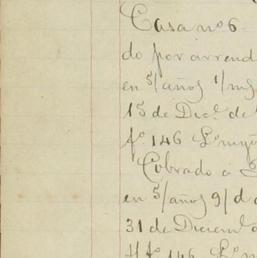 Casa nº 6.
do por arrend
en 5/años 1/m
15 de Dicº. de
fº 146 Lº may
Cobrado a
en 5/años 9/d
31 de Diciem
fº 146 Lº m